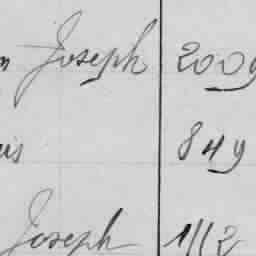 Joseph 2009
849
Joseph 1112